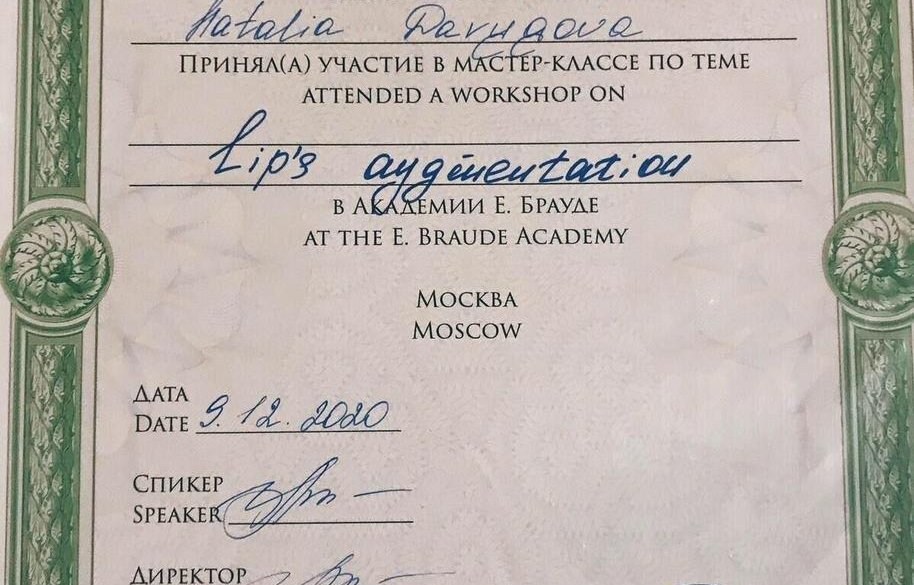 Natalia
ПРИНЯЛ(А) УЧАСТИЕ В МАСТЕР-КЛАССЕ ПО ТЕМЕ
ATTENDED A WORKSHOP ON
Lip's augmentation
В АКАДЕМИИ Е. БРАУДЕ
AT THE E. BRAUDE ACADEMY
МОСКВА
MOSCOW
ДАТА
DATE 9.12.2020
СПИКЕР
SPEAKER
ДИРЕКТОР